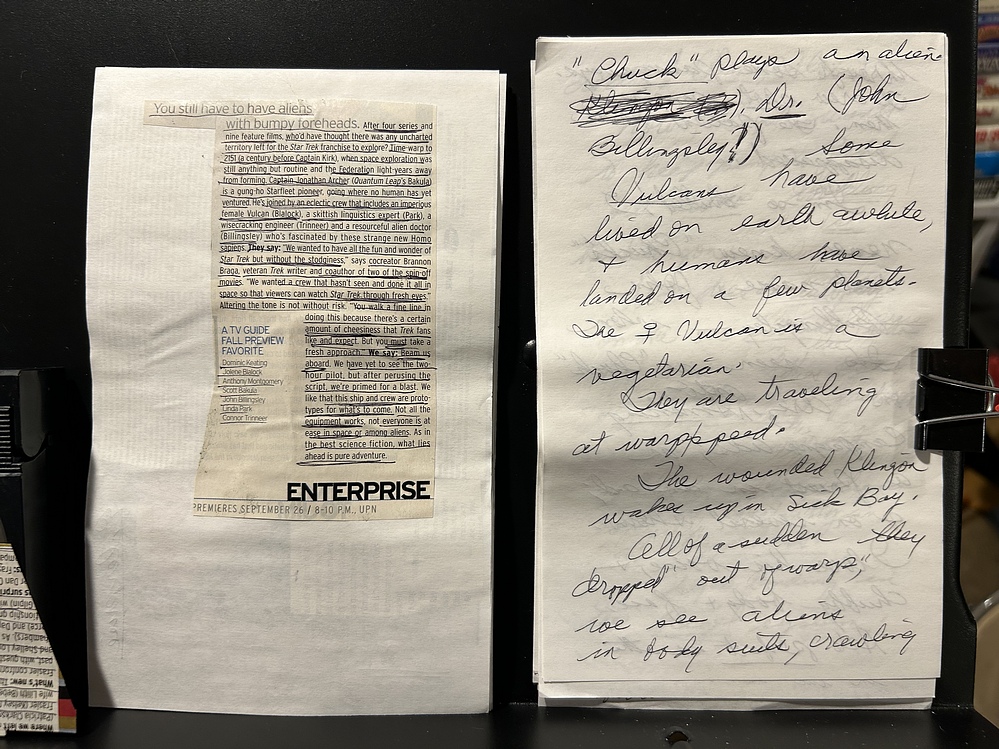 You still have to have aliens
with bumpy foreheads. After four series and
nine feature films, who'd have thought there was any uncharted
territory left for the Star Trek franchise to explore? Time-warp to
2151 (a century before Captain Kirk), when space exploration was
still anything but routine and the Federation light-years away
from forming. Captain Jonathan Archer (Quantum Leap's Bakula)
is a gung-ho Starfleet pioneer, going where no human has yet
ventured. He's joined by an eclectic crew that includes an imperious
female Vulcan (Blalock), a skittish linguistics expert (Park), a
wisecracking engineer (Trinneer) and a resourceful alien doctor
(Billingsley) who's fascinated by these strange new Homo
sapiens. They say: "We wanted to have all the fun and wonder of
Star Trek but without the stodginess," says cocreator Brannon
Braga, veteran Trek writer and coauthor of two of the spin-off
movies. "We wanted a crew that hasn't seen and done it all in
space so that viewers can watch Star Trek through fresh eyes."
Altering the tone is not without risk. "You walk a fine line in
doing this because there's a certain
amount of cheesiness that Trek fans
like and expect. But you must take a
fresh approach." We say: Beam us
aboard. We have yet to see the two-
hour pilot, but after perusing the
script, we're primed for a blast. We
like that this ship and crew are proto-
types for what's to come. Not all the
equipment works, not everyone is at
ease in space or among aliens. As in
the best science fiction, what lies
ahead is pure adventure.
A TV GUIDE
FALL PREVIEW
FAVORITE
Dominic Keating
Jolene Blalock
Anthony Montgomery
Scott Bakula
John Billingsley
Linda Park
Connor Trinneer
ENTERPRISE
PREMIERES SEPTEMBER 26 / 8-10 P.M., UPN
"Chuck" plays an alien
Klingon Dr. (John
Billingsley!)) Some
Vulcans have
lived on earth awhile,
+ humans have
landed on a few planets.
The ♀ Vulcan is a
vegetarian.
They are traveling
at warppspeed.
The wounded Klingon
wakes up in Sick Bay.
All of a sudden they
dropped" out of warp,"
we see aliens
in body suits, crawling